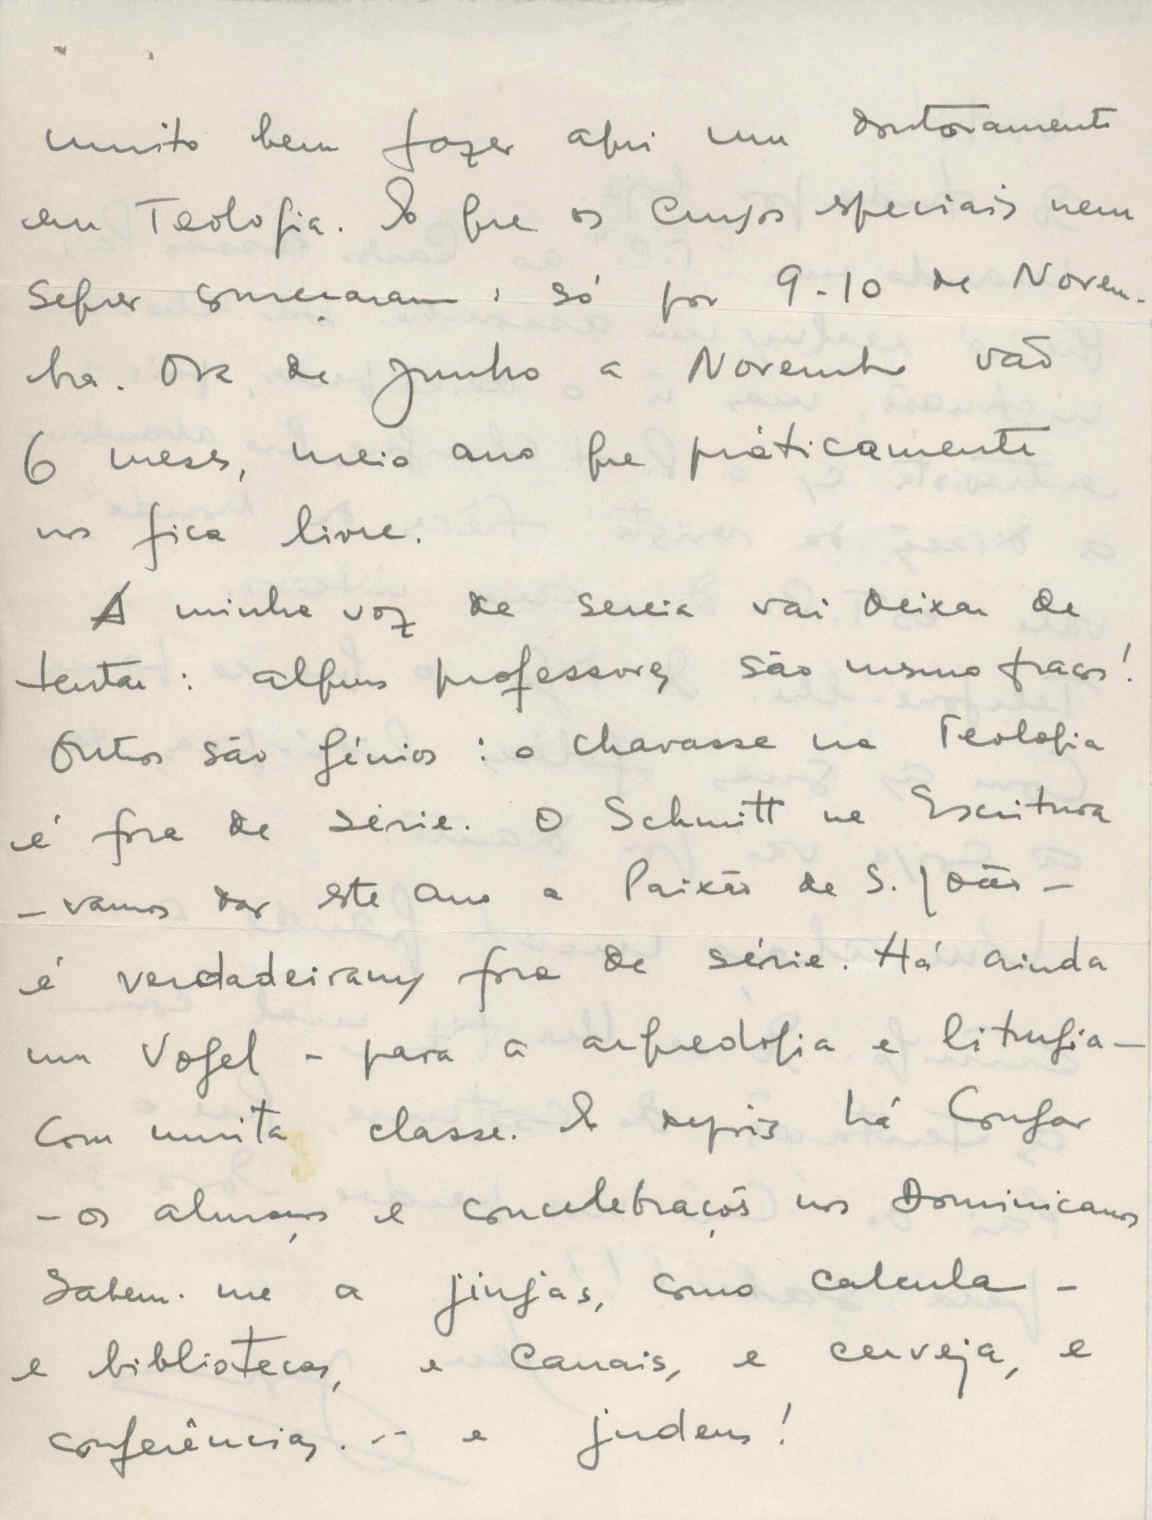 muito bem fazer aqui um doutoramento
em Teologia. E que os cursos especiais nem
sequer começaram: só por 9-10 de Novem-
bro. Ora de Junho a Novembro vão
6 meses, meio ano que pràticamente
nos fica livre.
A minha voz de sereia vai deixar de
tentar: alguns professores são mesmo fracos!
Outros são génios: o Chavasse na Teologia
é fora de série. O Schmitt na Escritura
- vamos dar este ano a Paixão de S. João -
é verdadeiramte fora de série. Há ainda
um Vogel - para a arqueologia e liturgia -
com muita classe. E depois há Congar
- os almoços e concelebrações nos Dominicanos
sabem-me a jinjas, como calcula -
e bibliotecas, e canais, e cerveja, e
conferências... e judeus!